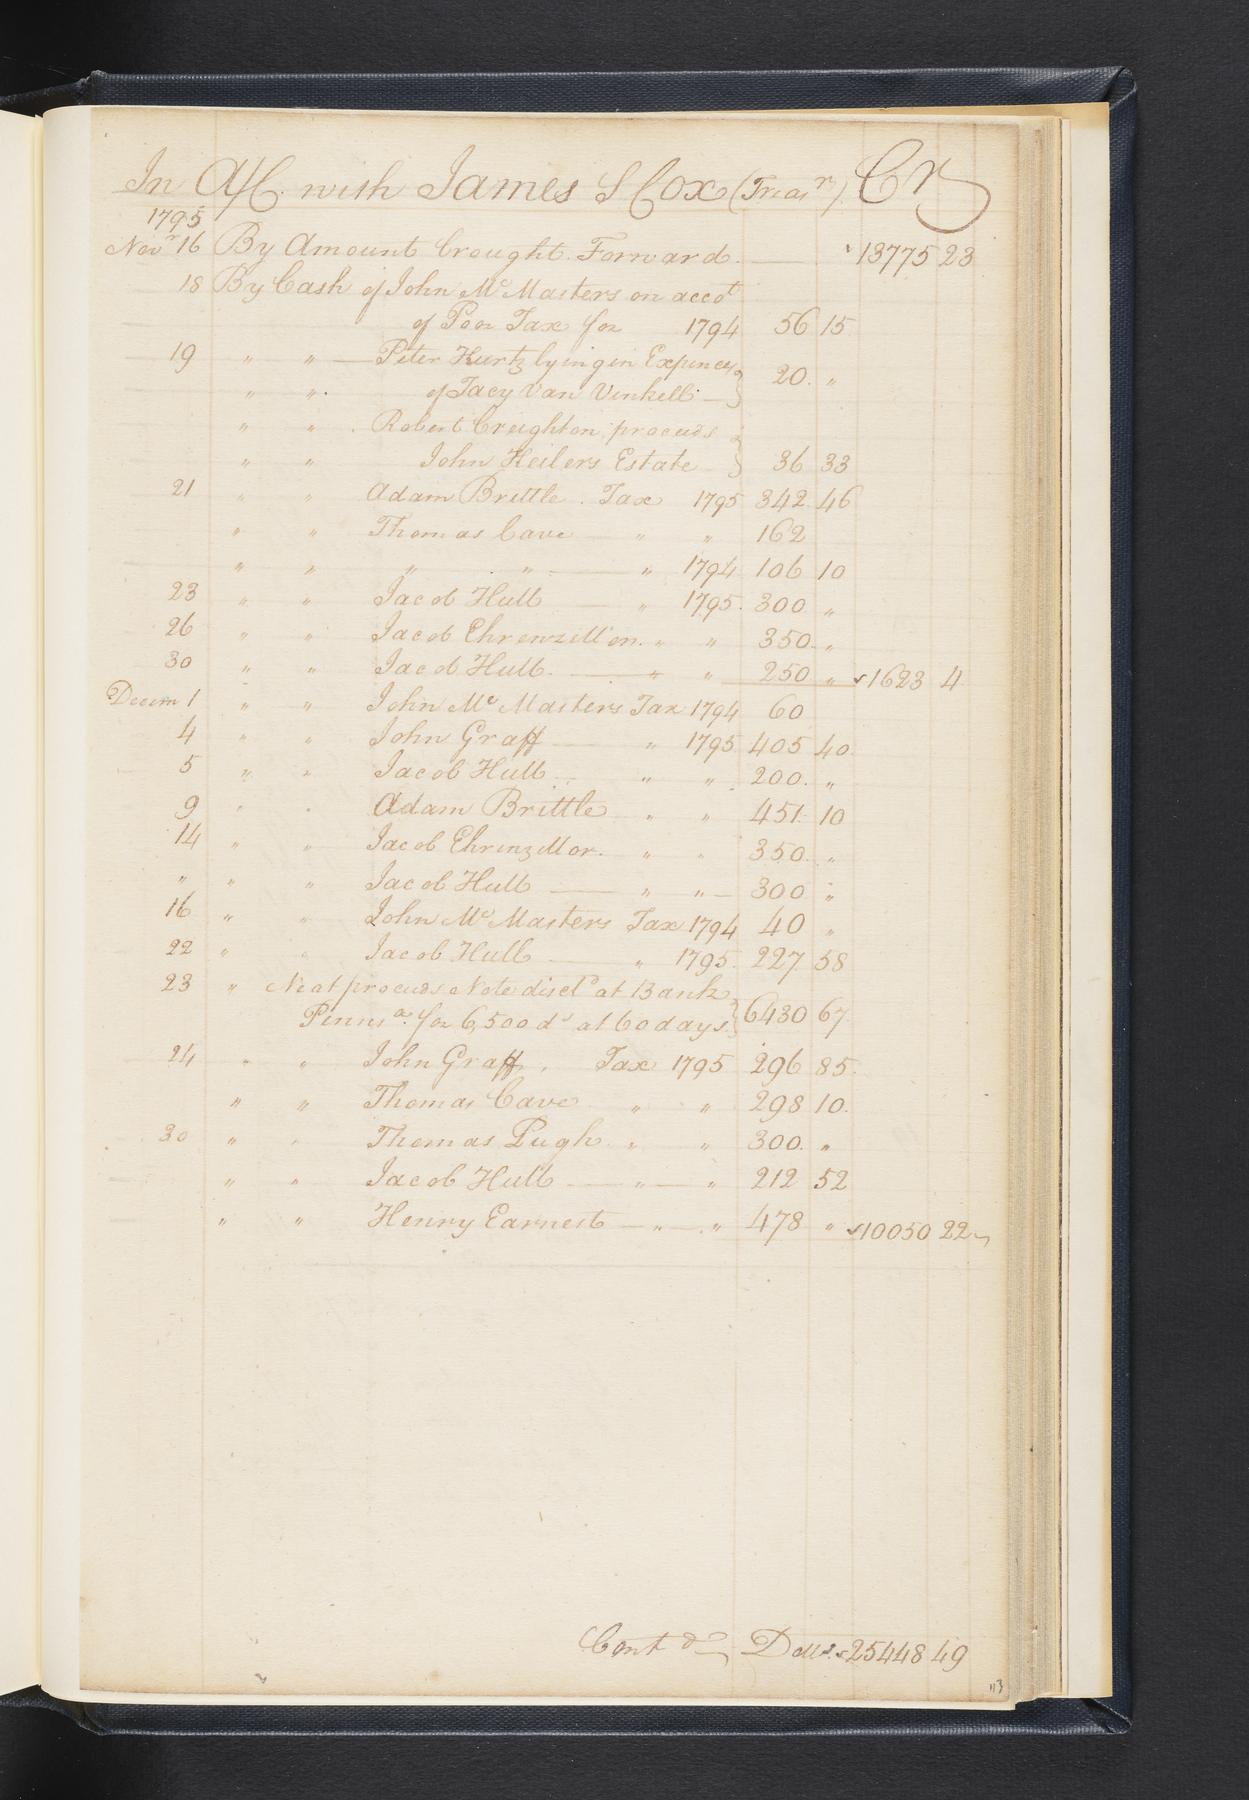 In A/C. with James S Cox (Treasr) Cr
1795
Novr 16 By Amount brought Forward. 13775 23
18 By Cash of John McMasters on accot
of Poor Tax for 1794 56 15
19 " " Peter Kurtz lying in Expences
" " of Jacy Van Vinkell 20 "
" " Robert Creighton proceeds
" " John Heilers Estate 36 33
21 " " Adam Brittle. Tax 1795 342 46
" " Thomas Cave " " 162
" " " " " 1794 106 10
23 " " Jacob Hull " 1795. 300 "
26 " " Jacob Ehrenzellor. " " 350 "
30 " " Jacob Hull. " " 250 " 1623 4
Decem 1 " " John McMasters Tax 1794 60
4 " " John Graff " 1795 405 40
5 " " Jacob Hull " " 200. "
9 " " Adam Brittle " " 451 10
14 " " Jacob Ehrenzellor. " " 350 "
" " " Jacob Hull " " 300 "
16 " " John McMasters Tax 1794 40 "
22 " " Jacob Hull " 1795. 227 58
23 " Neat proceeds Note discd at Bank
Pennsa. for 6,500 ds at 60 days. 6430 67
24 " " John Graff. Tax 1795 296 85
" " Thomas Cave " " 298 10
30 " " Thomas Pugh " " 300. "
" " Jacob Hull " " 212 52
" " Henry Earnest " " 478 " 10050 22
Contd Dolls. 25448 49
113